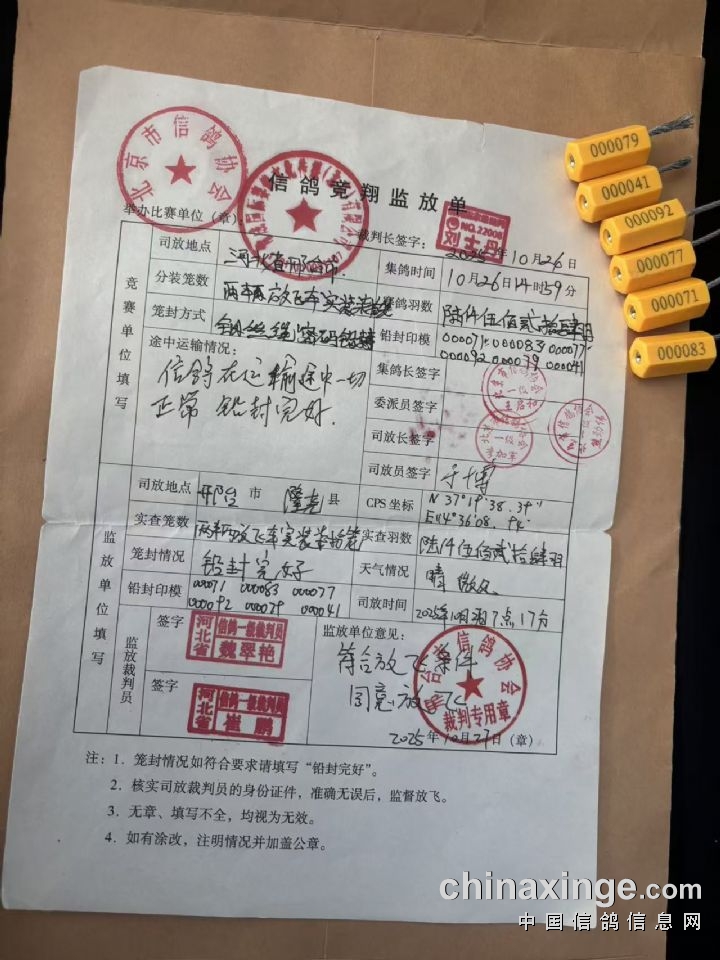 北京市信鸽协会
信鸽竞翔监放单
举办比赛单位（章）
裁判长签字：
NO.22008
2025年10月26日
竞赛单位填写
司放地点
河北省邢台市
集鸽时间
10月26日14时59分
分装笼数
两辆放飞车实装
赛鸽羽数
陆仟伍佰贰拾肆羽
笼封方式
钢丝绳密码铅封
铅封印模
000071 000083 000077
000092 000079 000041
途中运输情况：
信鸽在运输途中一切
正常 铅封完好.
集鸽长签字
委派员签字
司放长签字
司放员签字
于博
监放单位填写
司放地点
邢台市 隆尧县
GPS 坐标
N 37°19'38.39"
E114°36'08.94"
实查笼数
两辆放飞车实装
实查羽数
陆仟伍佰贰拾肆羽
笼封情况
铅封完好
天气情况
晴 微风
铅封印模
000071 000083 000077
000092 000079 000041
司放时间
2025年10月27日7点17分
监放裁判员
签字
河北省
信鸽一级裁判员
魏翠艳
签字
河北省
信鸽一级裁判员
崔鹏
监放单位意见：
符合放飞条件
同意放飞
信鸽协会
裁判专用章
2025年10月27日（章）
注：1. 笼封情况如符合要求请填写“铅封完好”。
2. 核实司放裁判员的身份证件，准确无误后，监督放飞。
3. 无章、填写不全，均视为无效。
4. 如有涂改，注明情况并加盖公章。
000079
000041
000092
000077
000071
000083
chinaxinge.com
中国信鸽信息网